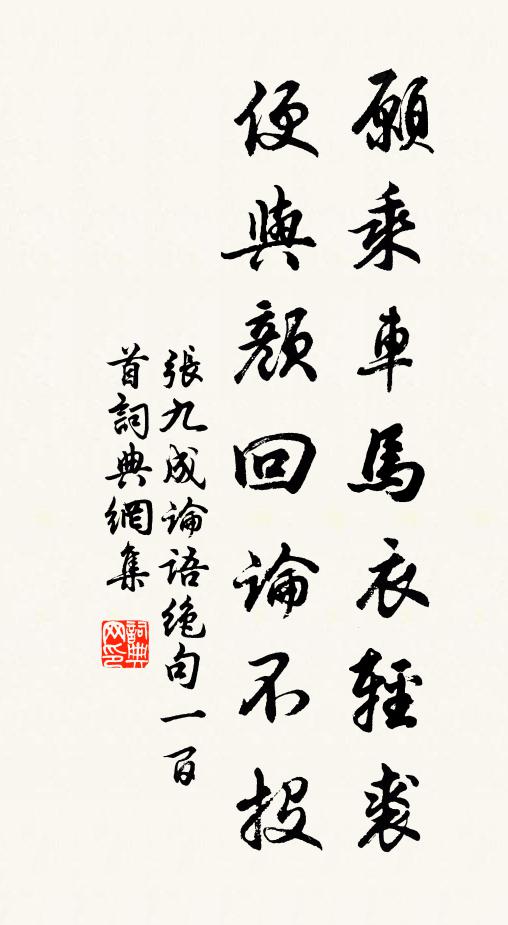 願乘車馬衣輕裘
便與顏回論不投
張九成論語絕句一百
首詞典網集
詞典网印